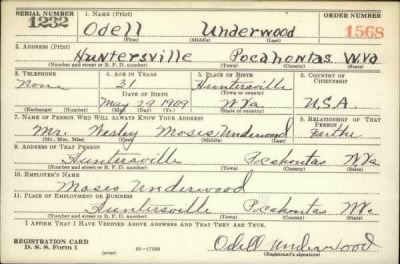 SERIAL NUMBER 1. NAME (Print) ORDER NUMBER
1232 Odell Underwood 1568
(First) (Middle) (Last)
2. ADDRESS (Print)
Huntersville Pocahontas W.Va
(Number and street or R. F. D. number) (Town) (County) (State)
3. TELEPHONE 4. AGE IN YEARS 5. PLACE OF BIRTH 6. COUNTRY OF CITIZENSHIP
None 31 Huntersville
DATE OF BIRTH (Town or county)
May 29 1909 W.Va U.S.A.
(Exchange) (Number) (Mo.) (Day) (Yr.) (State or country)
7. NAME OF PERSON WHO WILL ALWAYS KNOW YOUR ADDRESS 8. RELATIONSHIP OF THAT PERSON
Mr. Wesley Moses Underwood
(Mr., Mrs., Miss) (First) (Middle) (Last)
9. ADDRESS OF THAT PERSON
Huntersville Pocahontas W.Va
(Number and street or R. F. D. number) (Town) (County) (State)
10. EMPLOYER'S NAME
Moses Underwood
11. PLACE OF EMPLOYMENT OR BUSINESS
Huntersville Pocahontas W.Va
(Number and street or R. F. D. number) (Town) (County) (State)
I AFFIRM THAT I HAVE VERIFIED ABOVE ANSWERS AND THAT THEY ARE TRUE.
REGISTRATION CARD
D. S. S. Form 1 (over) Odell Underwood
(Registrant's signature)